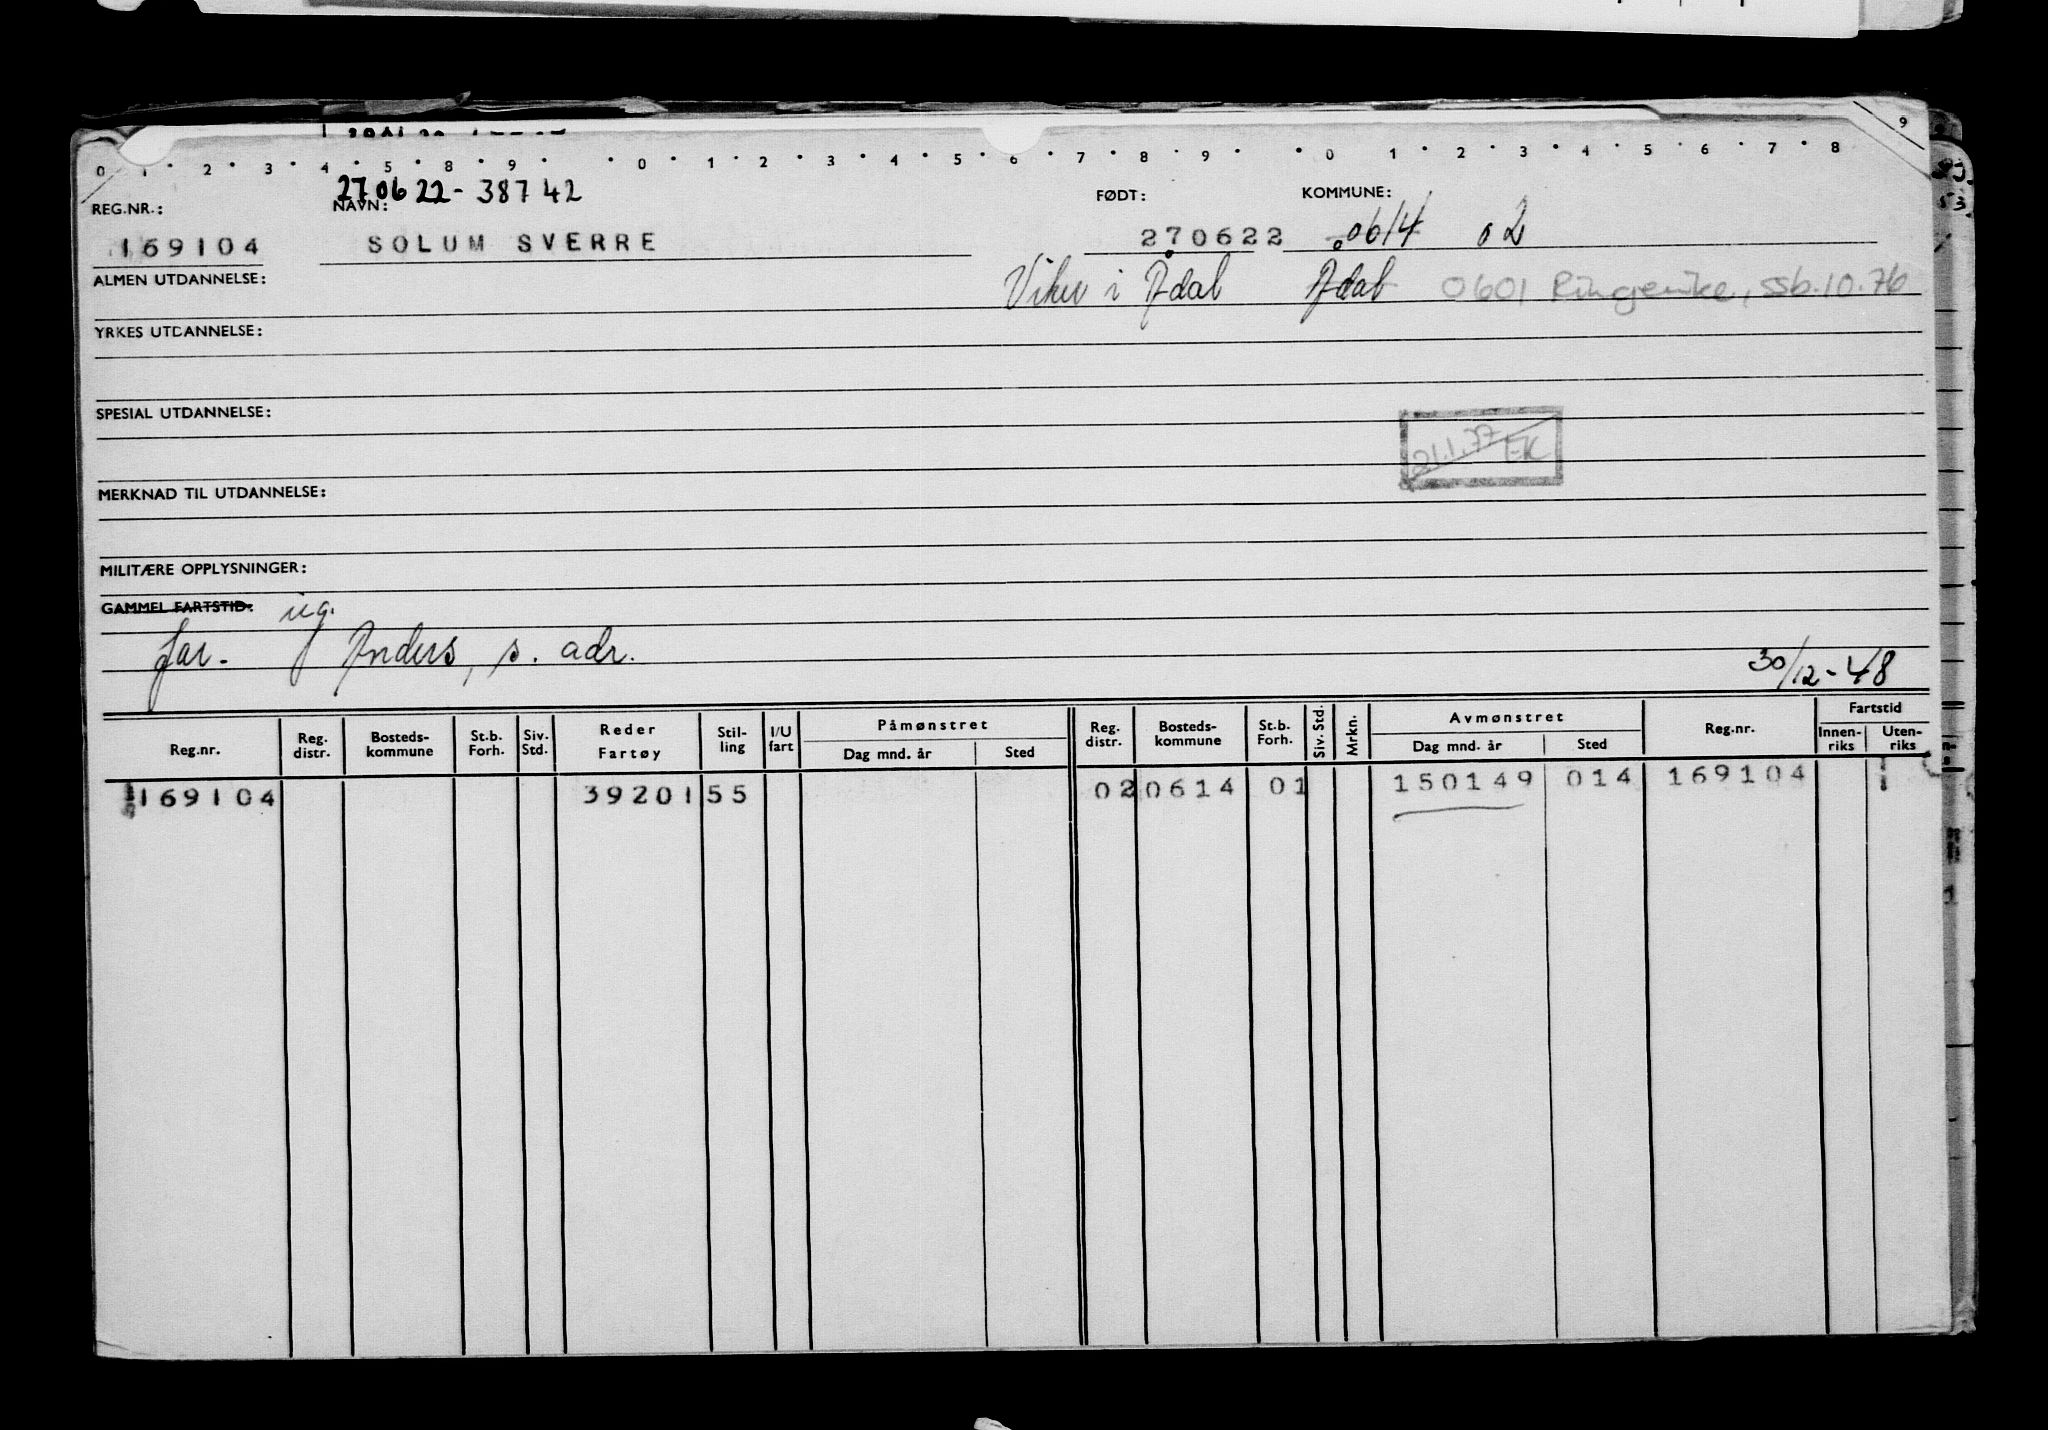 0 1 2 3 4 5 8 9 0 1 2 3 4 5 6 7 8 9 0 1 2 3 4 5 6 7 8 9
270622-38742
REG.NR.: NAVN: FØDT: KOMMUNE:
169104 SOLUM SVERRE 270622 0614 02
ALMEN UTDANNELSE: Viker i Ådal Ådal 0601 Ringerike, ssb.10.76
YRKES UTDANNELSE:
SPESIAL UTDANNELSE:
21.1.77 EK
MERKNAD TIL UTDANNELSE:
MILITÆRE OPPLYSNINGER:
GAMMEL FARTSTID: ug.
far. Anders, s. adr.
30/12-48
Reg.nr. Reg. distr. Bosteds-kommune St.b. Forh. Siv. Std. Reder Fartøy Stil-ling I/U fart Påmønstret Dag mnd. år Sted Reg. distr. Bosteds-kommune St.b. Forh. Siv. Std. Mrkn. Avmønstret Dag mnd. år Sted Reg.nr. Fartstid Innen-riks Uten-riks
169104 39201 55 02 0614 01 150149 014 169104